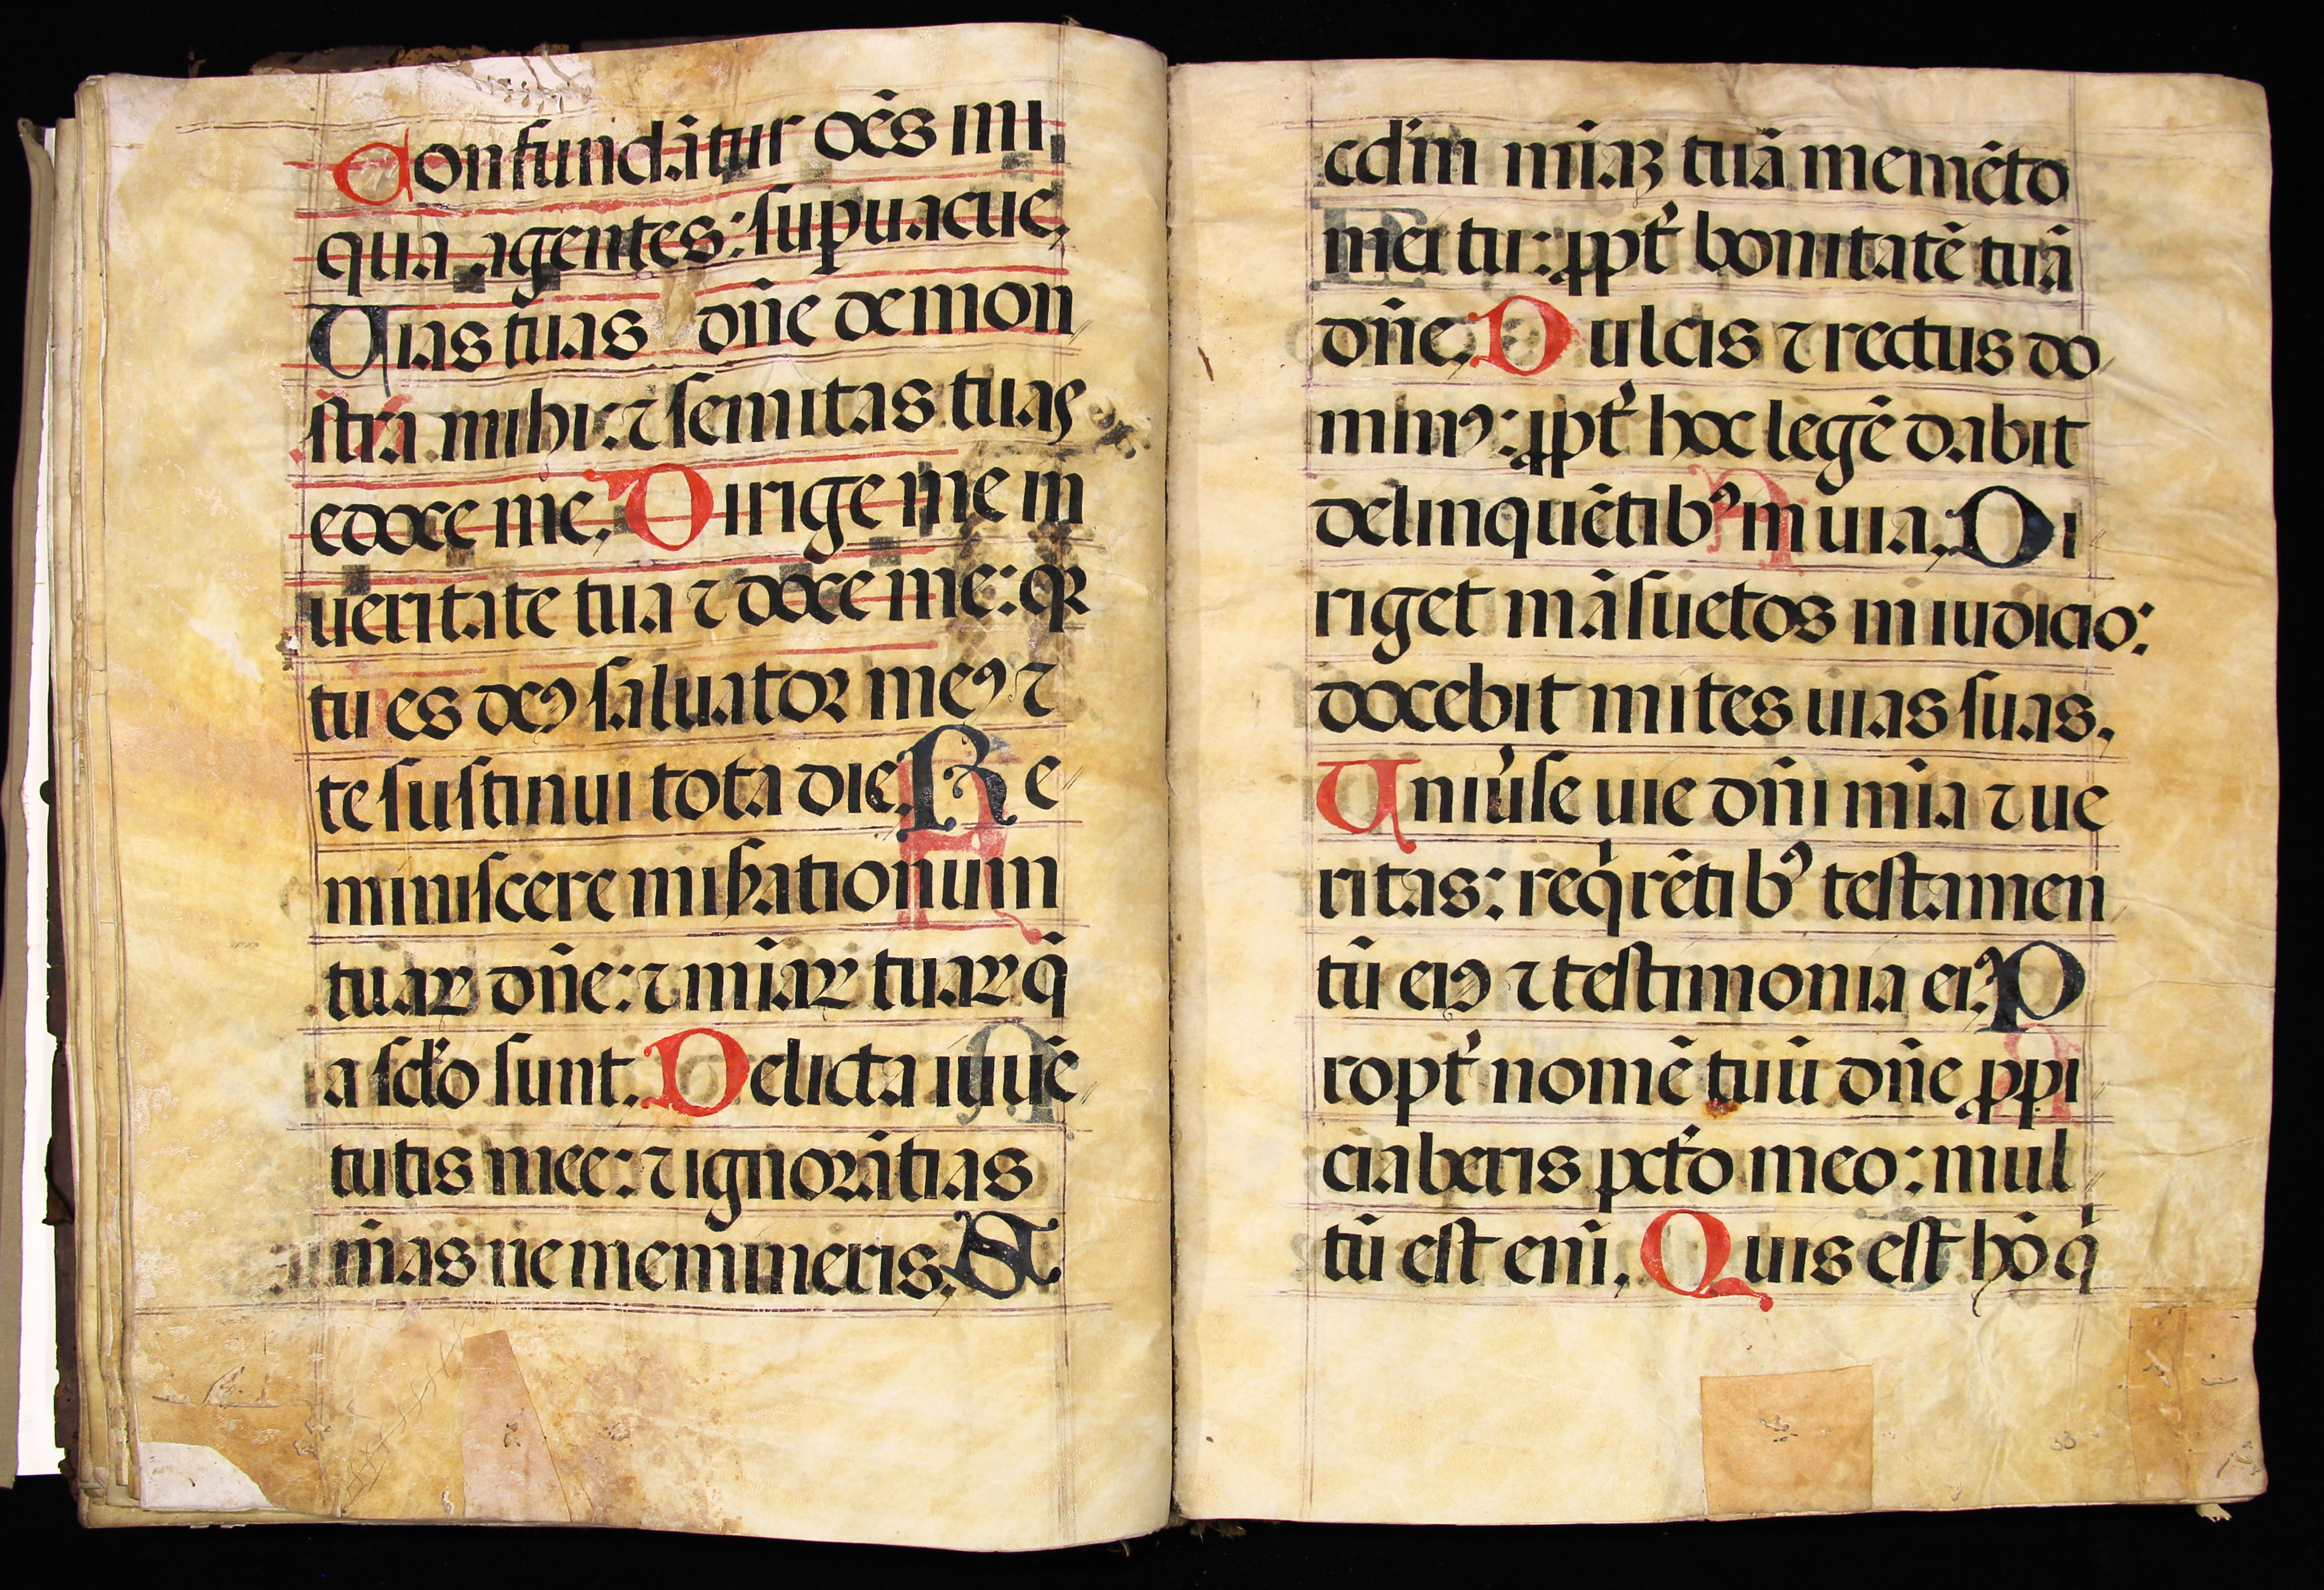 Confundãtur oẽs ini
qua agentes: supuacue.
Uias tuas dñe demon
stra mihi: ⁊ semitas tuas
edoce me. Dirige me in
ueritate tua ⁊ doce me: qꝛ
tu es deꝰ saluator meꝰ ⁊
te sustinui tota die. Re
miniscere miẜationum
tuaꝝ dñe: ⁊ mĩaꝝ tuaꝝ q̃
a sclo sunt. Delicta iuuẽ
tutis mee: ⁊ ignorãtias
m̃as ne memineris. S
ecdm̃ mĩaꝫ tuã memẽto
mei tu: ꝓpt̉ bonitatẽ tuã
dñe. Dulcis ⁊ rectus do
minꝰ: ꝓpt̉ hoc legẽ dabit
delinquẽtibꝰ in uia. Di
riget mãsuetos in iudicio:
docebit mites uias suas.
Uniu̾se uie dñi mĩa ⁊ ue
ritas: reqͥrẽtibꝰ testamen
tũ eiꝰ ⁊ testimonia eiꝰ. P
ropt̉ nomẽ tuũ dñe ꝓpi
ciaberis pctõ meo: mul
tũ est eni̅. Quis est hõ qͥ
33